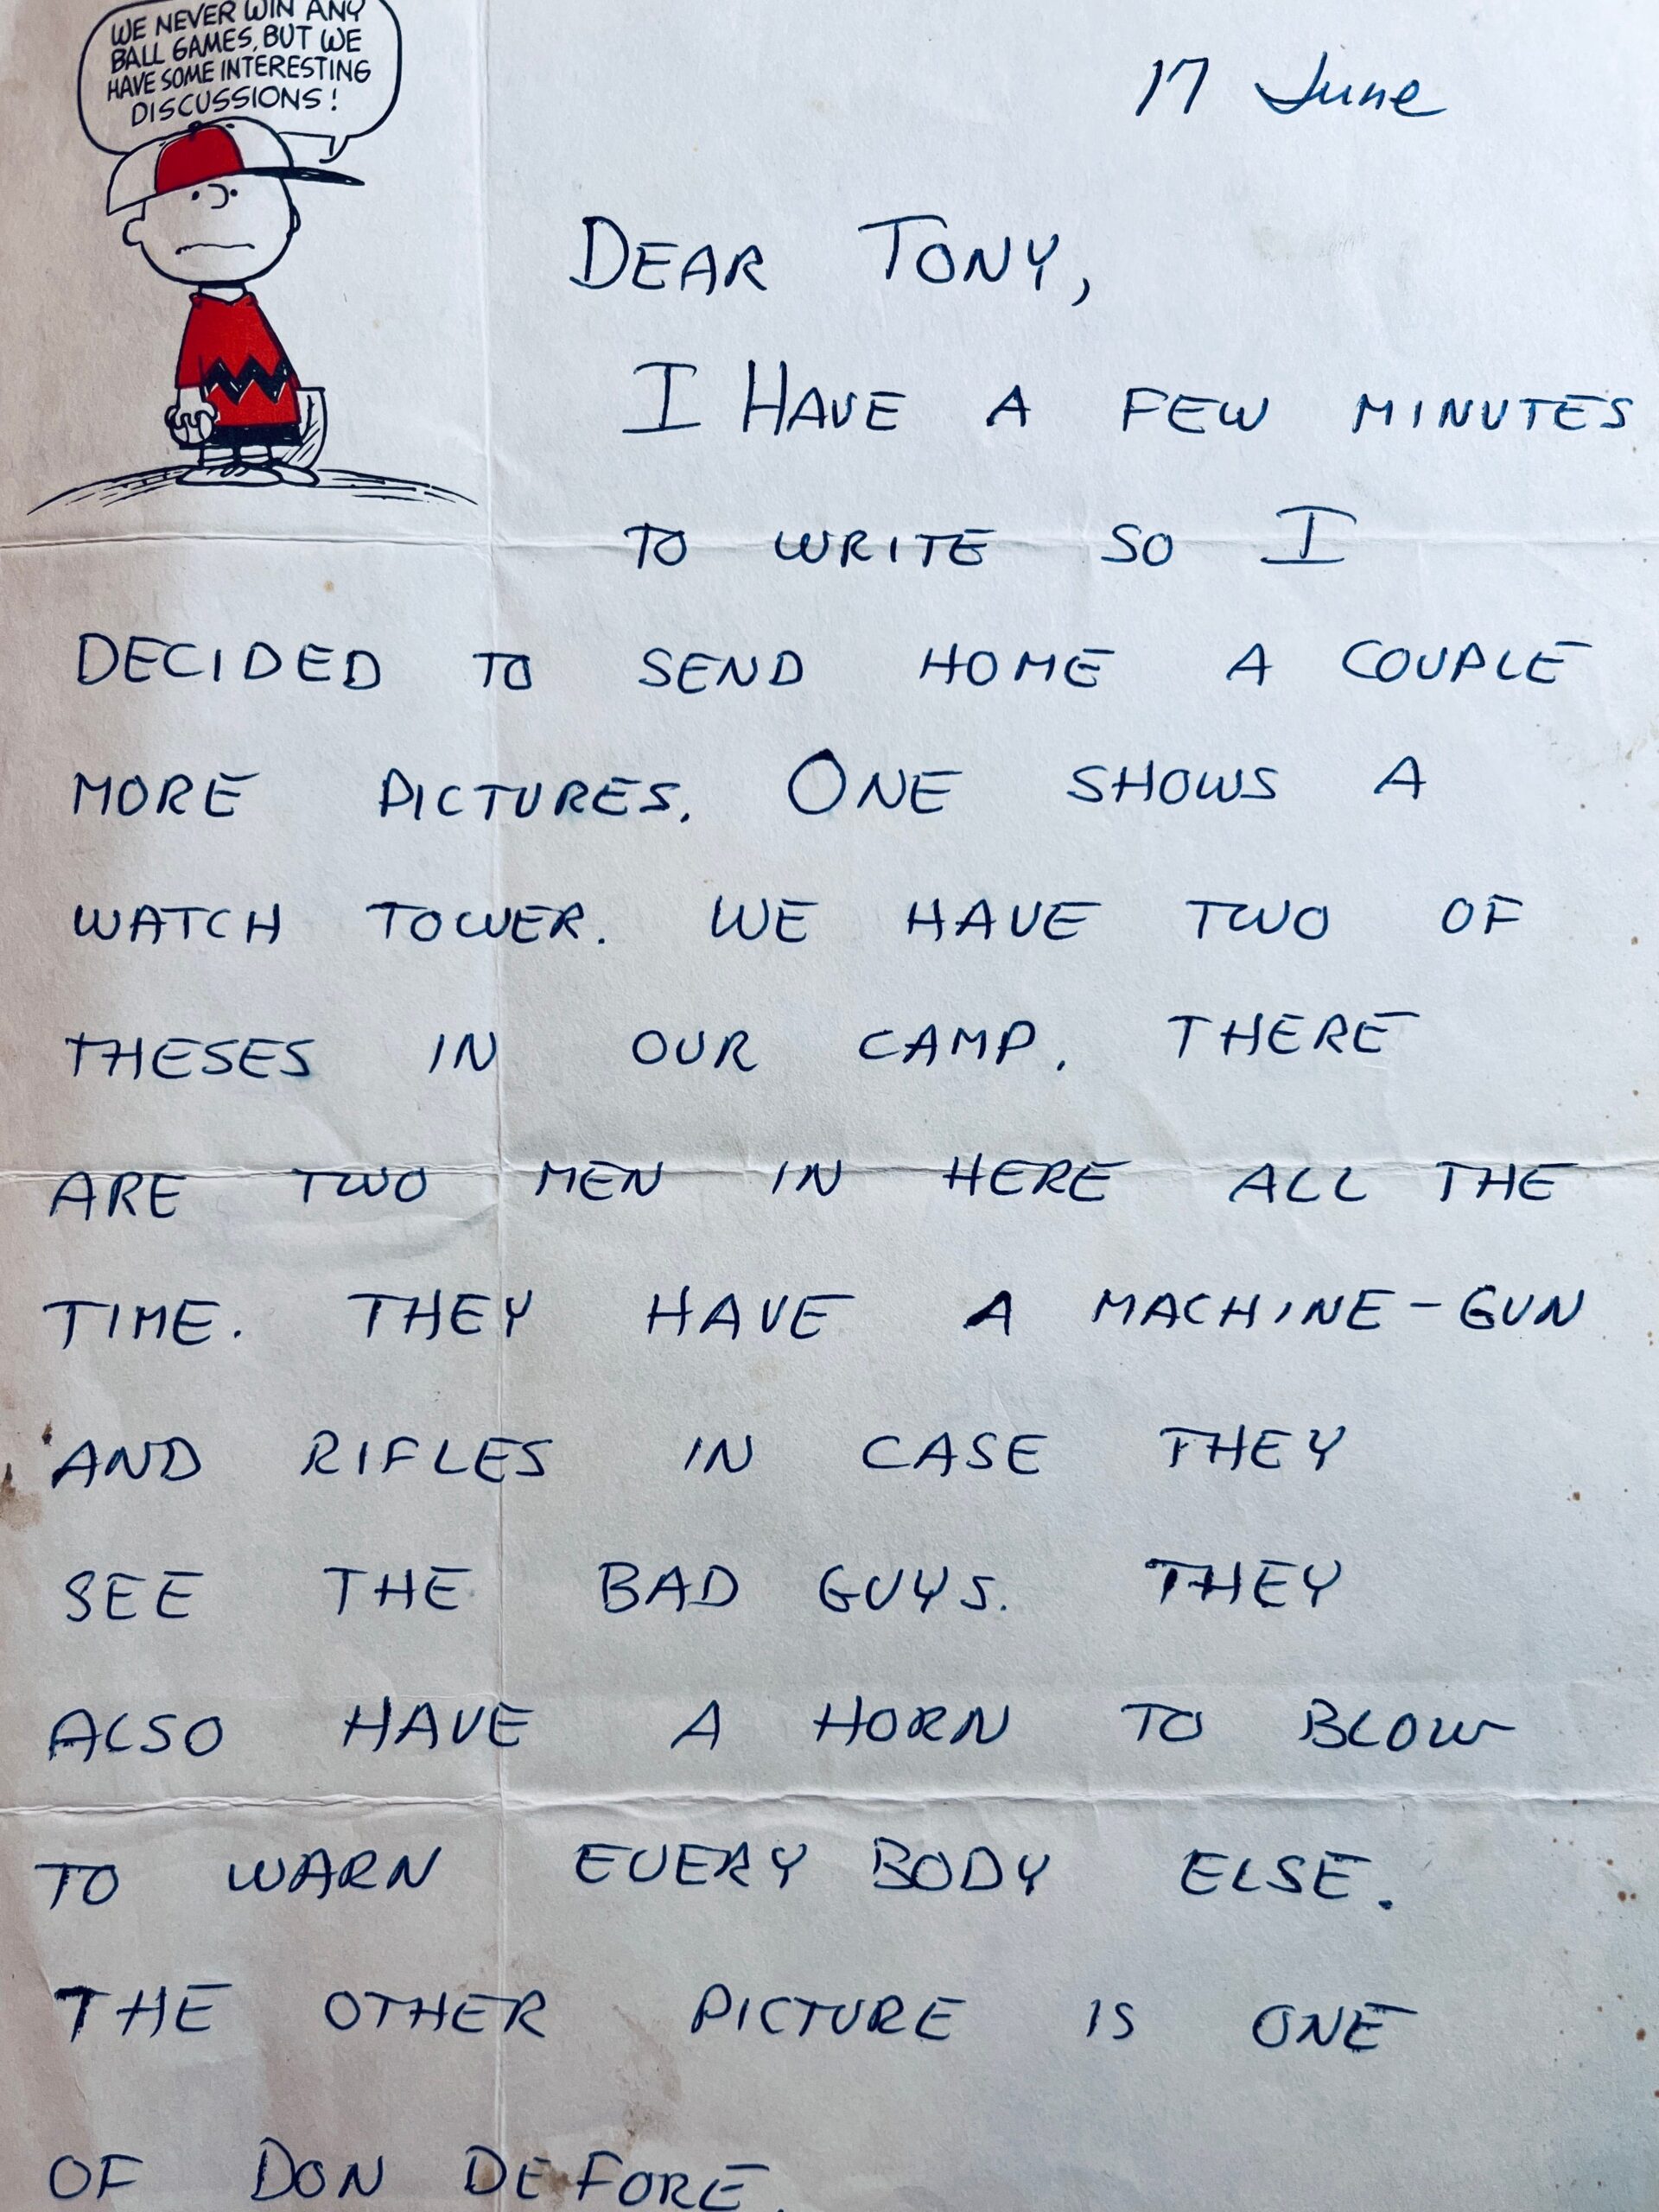 WE NEVER WIN ANY
BALL GAMES, BUT WE
HAVE SOME INTERESTING
DISCUSSIONS!
17 June
DEAR TONY,
I HAVE A FEW MINUTES
TO WRITE SO I
DECIDED TO SEND HOME A COUPLE
MORE PICTURES. ONE SHOWS A
WATCH TOWER. WE HAVE TWO OF
THESES IN OUR CAMP. THERE
ARE TWO MEN IN HERE ALL THE
TIME. THEY HAVE A MACHINE-GUN
AND RIFLES IN CASE THEY
SEE THE BAD GUYS. THEY
ALSO HAVE A HORN TO BLOW
TO WARN EVERY BODY ELSE.
THE OTHER PICTURE IS ONE
OF DON DE FORE.